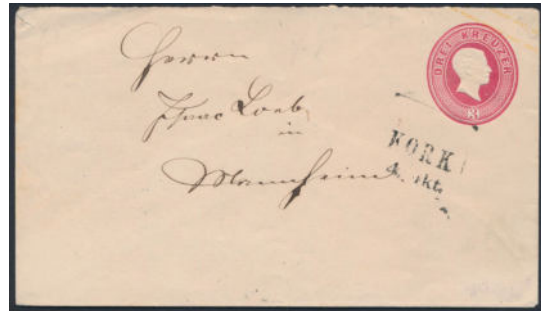 DREI KREUZER
3
Herrn
Isaac Loeb
in
Mannheim
KORK
4. Okt.